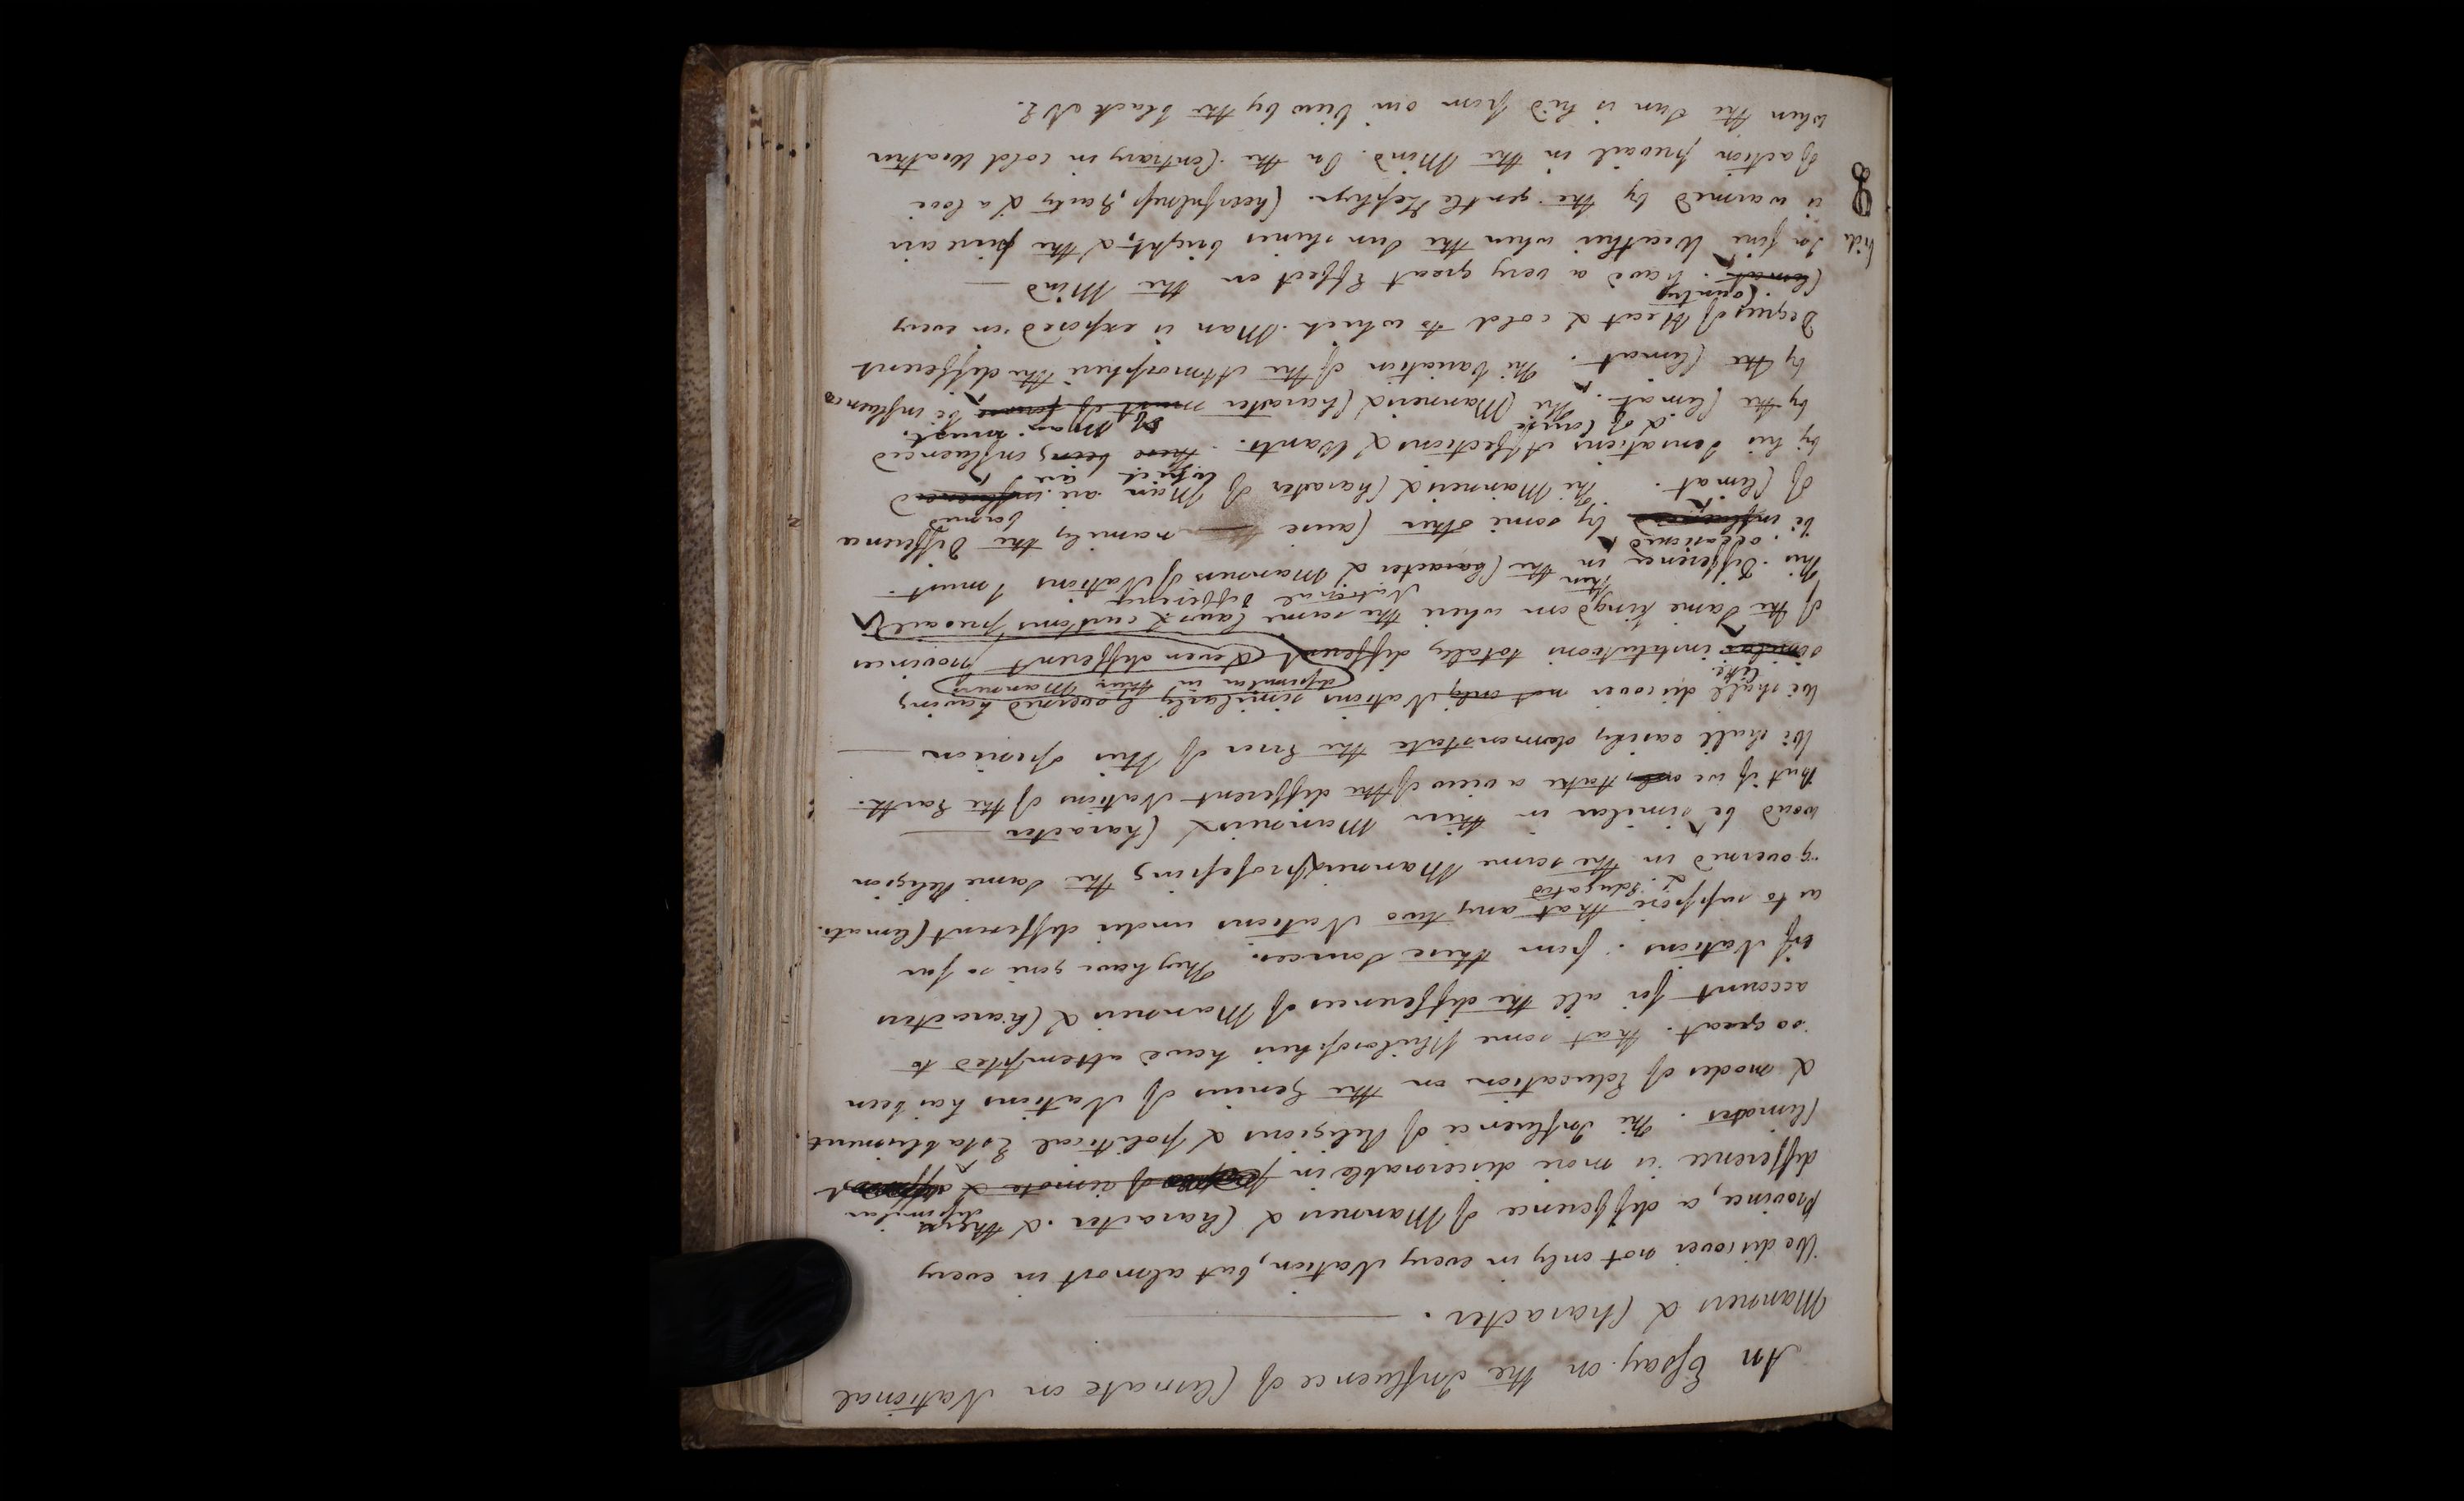 An Essay on the Influence of Climate on National
Manners & Character.
We discover not only in every Nation, but almost in every
Province, a difference of Manners & Character & there
dissimilar
difference is more discernable in of remote &
Climates. The Influence of Religions & political Establisment
& modes of Education on the Genius of Nations has been
so great. that some Philosophers have attempted to
account for all the differences of Manners & Characters
of Nations. from these Sources. They have gone so far
as to suppose that any two Nations under different Climats.
& Educated
governed in the same Manner professing the Same Religion
woud be similar in their Manners & Character
But if we take a view of the different Nations of the Earth.
We shall easily demonstate the Error of this Opinion
We shall discover not only Nations similarly Governed having
like dissimilar in their Manners
similar institutions totally different & even different provinces
of the Same kingdom where the same laws & customs prevail
then National different
This Difference in the Character & Manners of Nations must
occasioned
be influenced by some other Cause namely the Difference
of Climat. The Manners & Character of Man are influenced
by his Sensations Affections & Wants. these being influenced
& of Course of Man must
by the Climat. The Manners & Character must of course be influenced
by the Climat. The Variation of the Atmosphere the different
Degrees of Heat & cold to which Man is exposed in every
Country
Climat. have a very great Effect on the Mind
In fine Weather when the Sun shines bright, & the air
vide
is warmed by the gentle Zephyr. Cheerfulness, Gaity & a love
of action prevail in the Mind. On the Contrary in cold Weather
when the Sun is hid from our View by the black N 2.